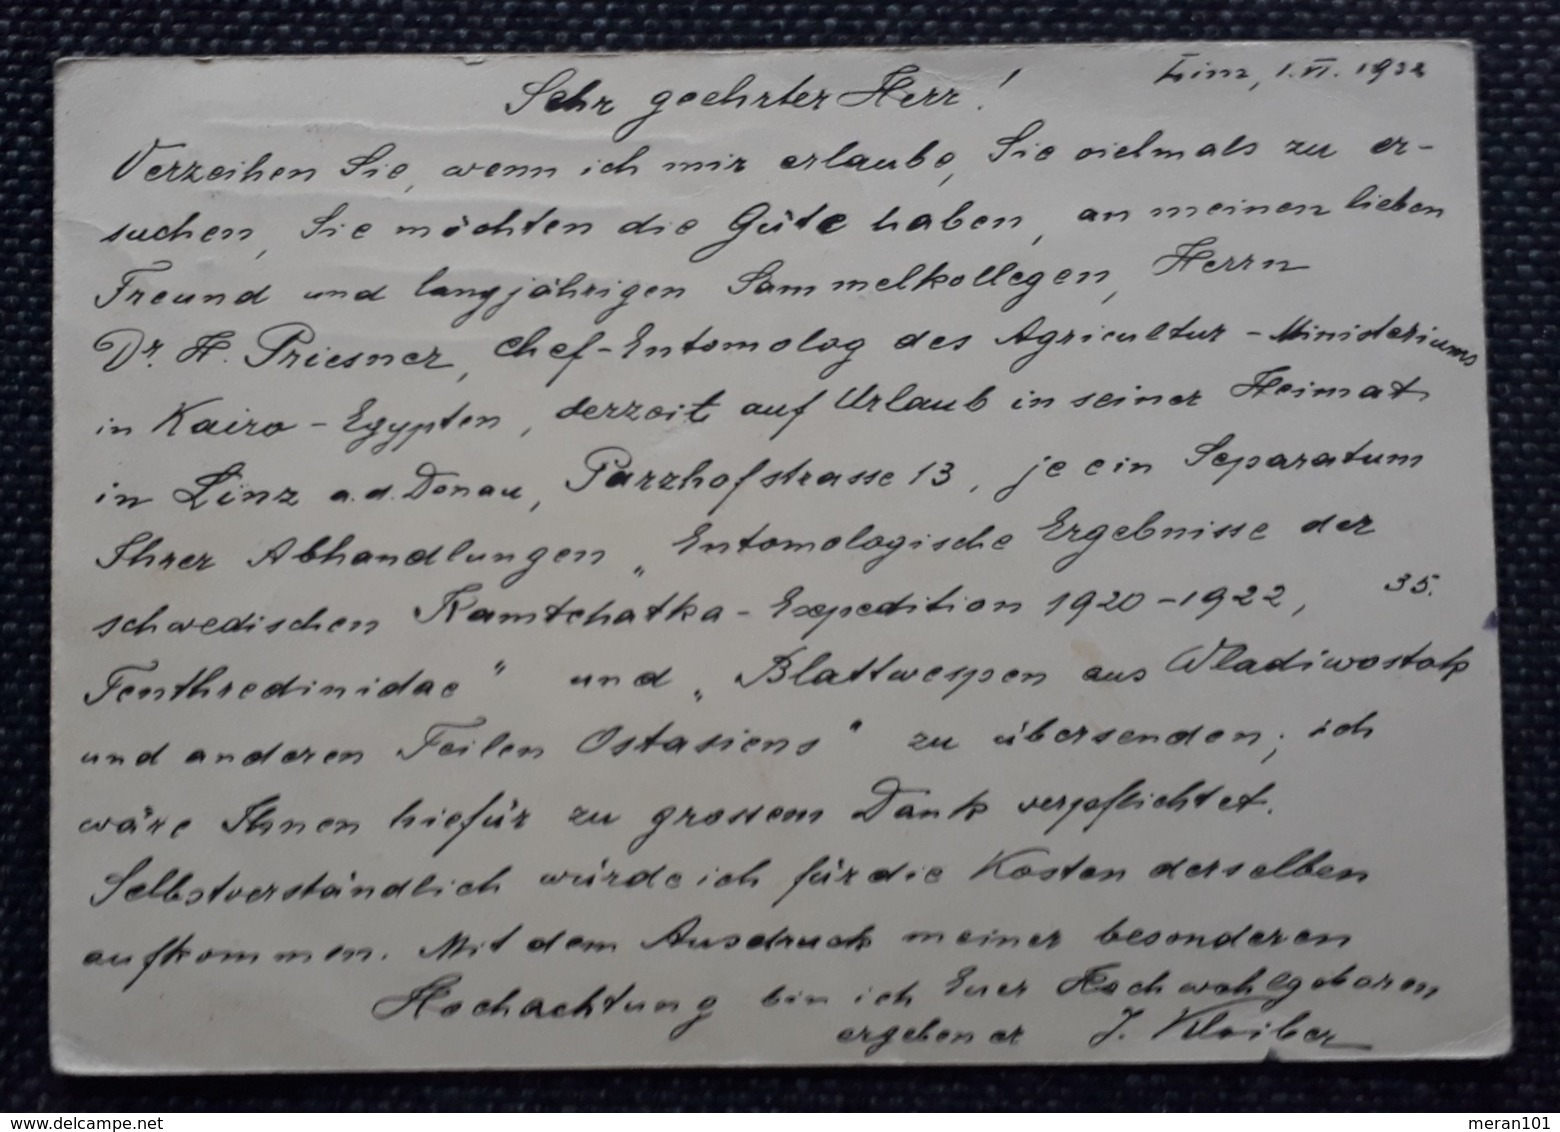 Linz, 1.VI.1932
Sehr geehrter Herr!
Verzeihen Sie, wenn ich mir erlaube, Sie vielmals zu er-
suchen, Sie möchten die Güte haben, an meinen lieben
Freund und langjährigen Sammelkollegen, Herrn
Dr. H. Priesner, Chef-Entomolog des Agricultur-Ministeriums
in Kairo-Egypten, derzeit auf Urlaub in seiner Heimat
in Linz a.d. Donau, Parzhofstrasse 13, je ein Separatum
Ihrer Abhandlungen „Entomologische Ergebnisse der
schwedischen Kamtchatka-Expedition 1920-1922, 35.
Tenthredinidae" und „Blattwespen aus Wladiwostok
und anderen Teilen Ostasiens" zu übersenden; ich
wäre Ihnen hiefür zu grossem Dank verpflichtet.
Selbstverständlich würde ich für die Kosten derselben
aufkommen. Mit dem Ausdruck meiner besonderen
Hochachtung bin ich Euer Hochwohlgeboren
ergebener J. Kloiber
meran101